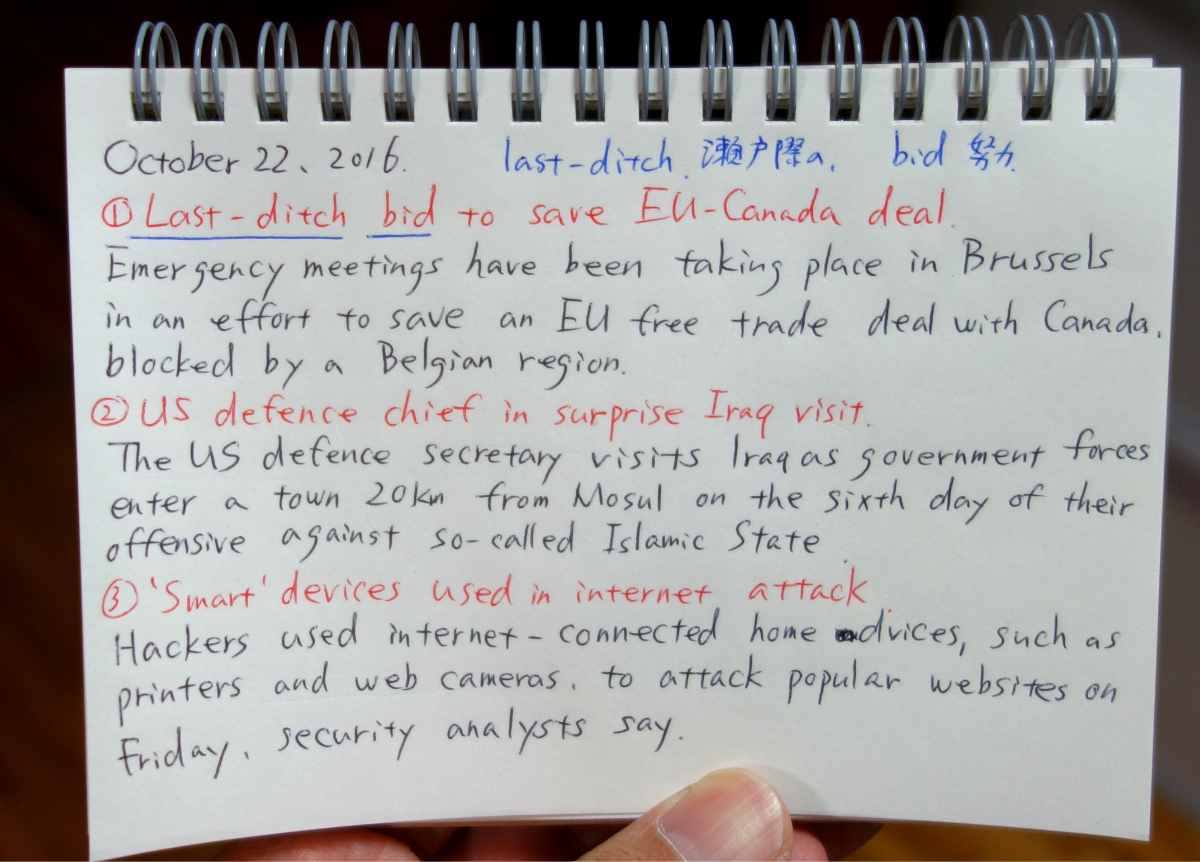 October 22、2016. last-ditch. 瀬戸際の. bid 努力.
① Last-ditch bid to save EU-Canada deal.
Emergency meetings have been taking place in Brussels
in an effort to save an EU free trade deal with Canada.
blocked by a Belgian region.
② US defence chief in surprise Iraq visit.
The US defence secretary visits Iraq as government forces
enter a town 20km from Mosul on the sixth day of their
offensive against so-called Islamic State.
③ 'Smart' devices used in internet attack
Hackers used internet-connected home dvices, such as
printers and web cameras. to attack popular websites on
Friday. security analysts say.